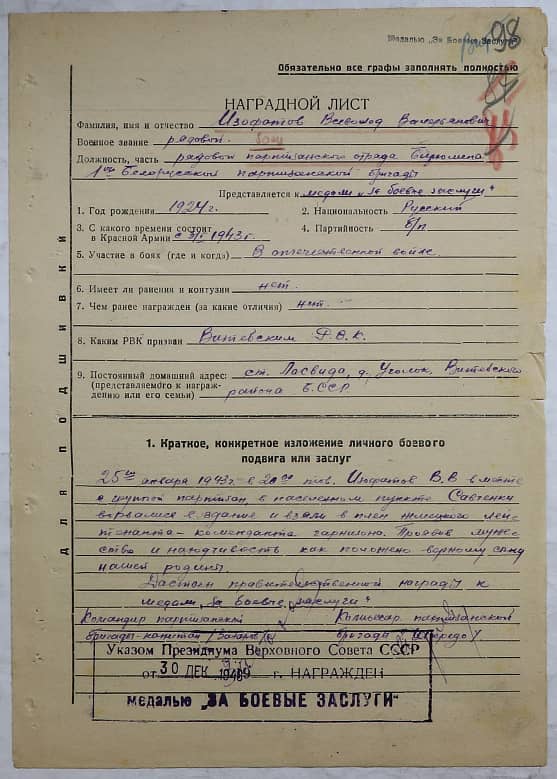 Медалью „За Боевые Заслуги"
98
Обязательно все графы заполнять полностью
НАГРАДНОЙ ЛИСТ
Фамилия, имя и отчество Изофатов Всеволод Валерьянович
Военное звание рядовой
Должность, часть рядовой партизанского отряда
1-ой Белорусской партизанской бригады
Представляется к медали „За боевые заслуги"
1. Год рождения 1924 г. 2. Национальность Русский
3. С какого времени состоит
в Красной Армии с 1943 г. 4. Партийность б/п
5. Участие в боях (где и когда) В отечественной войне.
6. Имеет ли ранения и контузии нет.
7. Чем ранее награжден (за какие отличия) нет.
8. Каким РВК призван
9. Постоянный домашний адрес: ст. Лосвида, д. Уголок,
(представляемого к награж-
дению или его семьи) района БССР
ДЛЯ ПОДШИВКИ
1. Краткое, конкретное изложение личного боевого
подвига или заслуг
25го января 1943 г. в тов. Изофатов В.В вместе
с группой партизан в населенном пункте Савченки
ворвались в здание и взяли в плен немецкого лей-
тенанта - коменданта гарнизона. Проявив муже-
ство и находчивость как положено верному сыну
нашей родины.
Достоин правительственной награды к
медали „За боевые заслуги"
Командир партизанской Комиссар партизанской
бригады капитан бригады
Указом Президиума Верховного Совета СССР
от 30 ДЕК г. НАГРАЖДЕН
медалью „ЗА БОЕВЫЕ ЗАСЛУГИ"